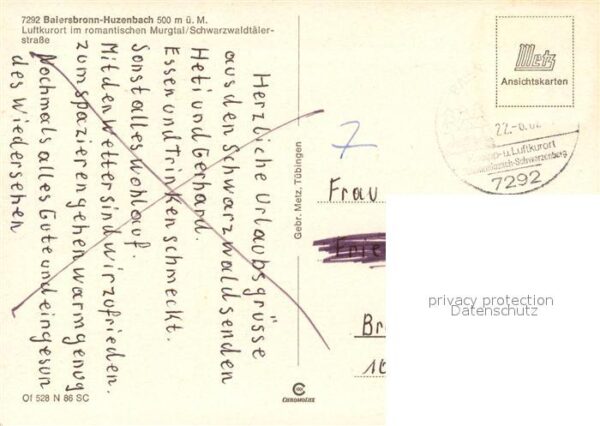 7292 Baiersbronn-Huzenbach 500 m ü. M.
Luftkurort im romantischen Murgtal/Schwarzwaldtäler-
straße
Herzliche Urlaubsgrüsse
aus den Schwarzwald senden
Heti und Gerhard.
Essen und Trinken schmeckt.
Sonst alles wohlauf.
Mit den Wetter sind wir zufrieden.
zum spazieren gehen warm genug
Nochmals alles Gute und ein gesun
des Wiedersehen
Of 528 N 86 SC
Gebr. Metz, Tübingen
CHROMOLUX
Metz
Ansichtskarten
22.-6.
u. Luftkurort
-Schwarzenberg
7292
7
Frau
privacy protection
Datenschutz
Br